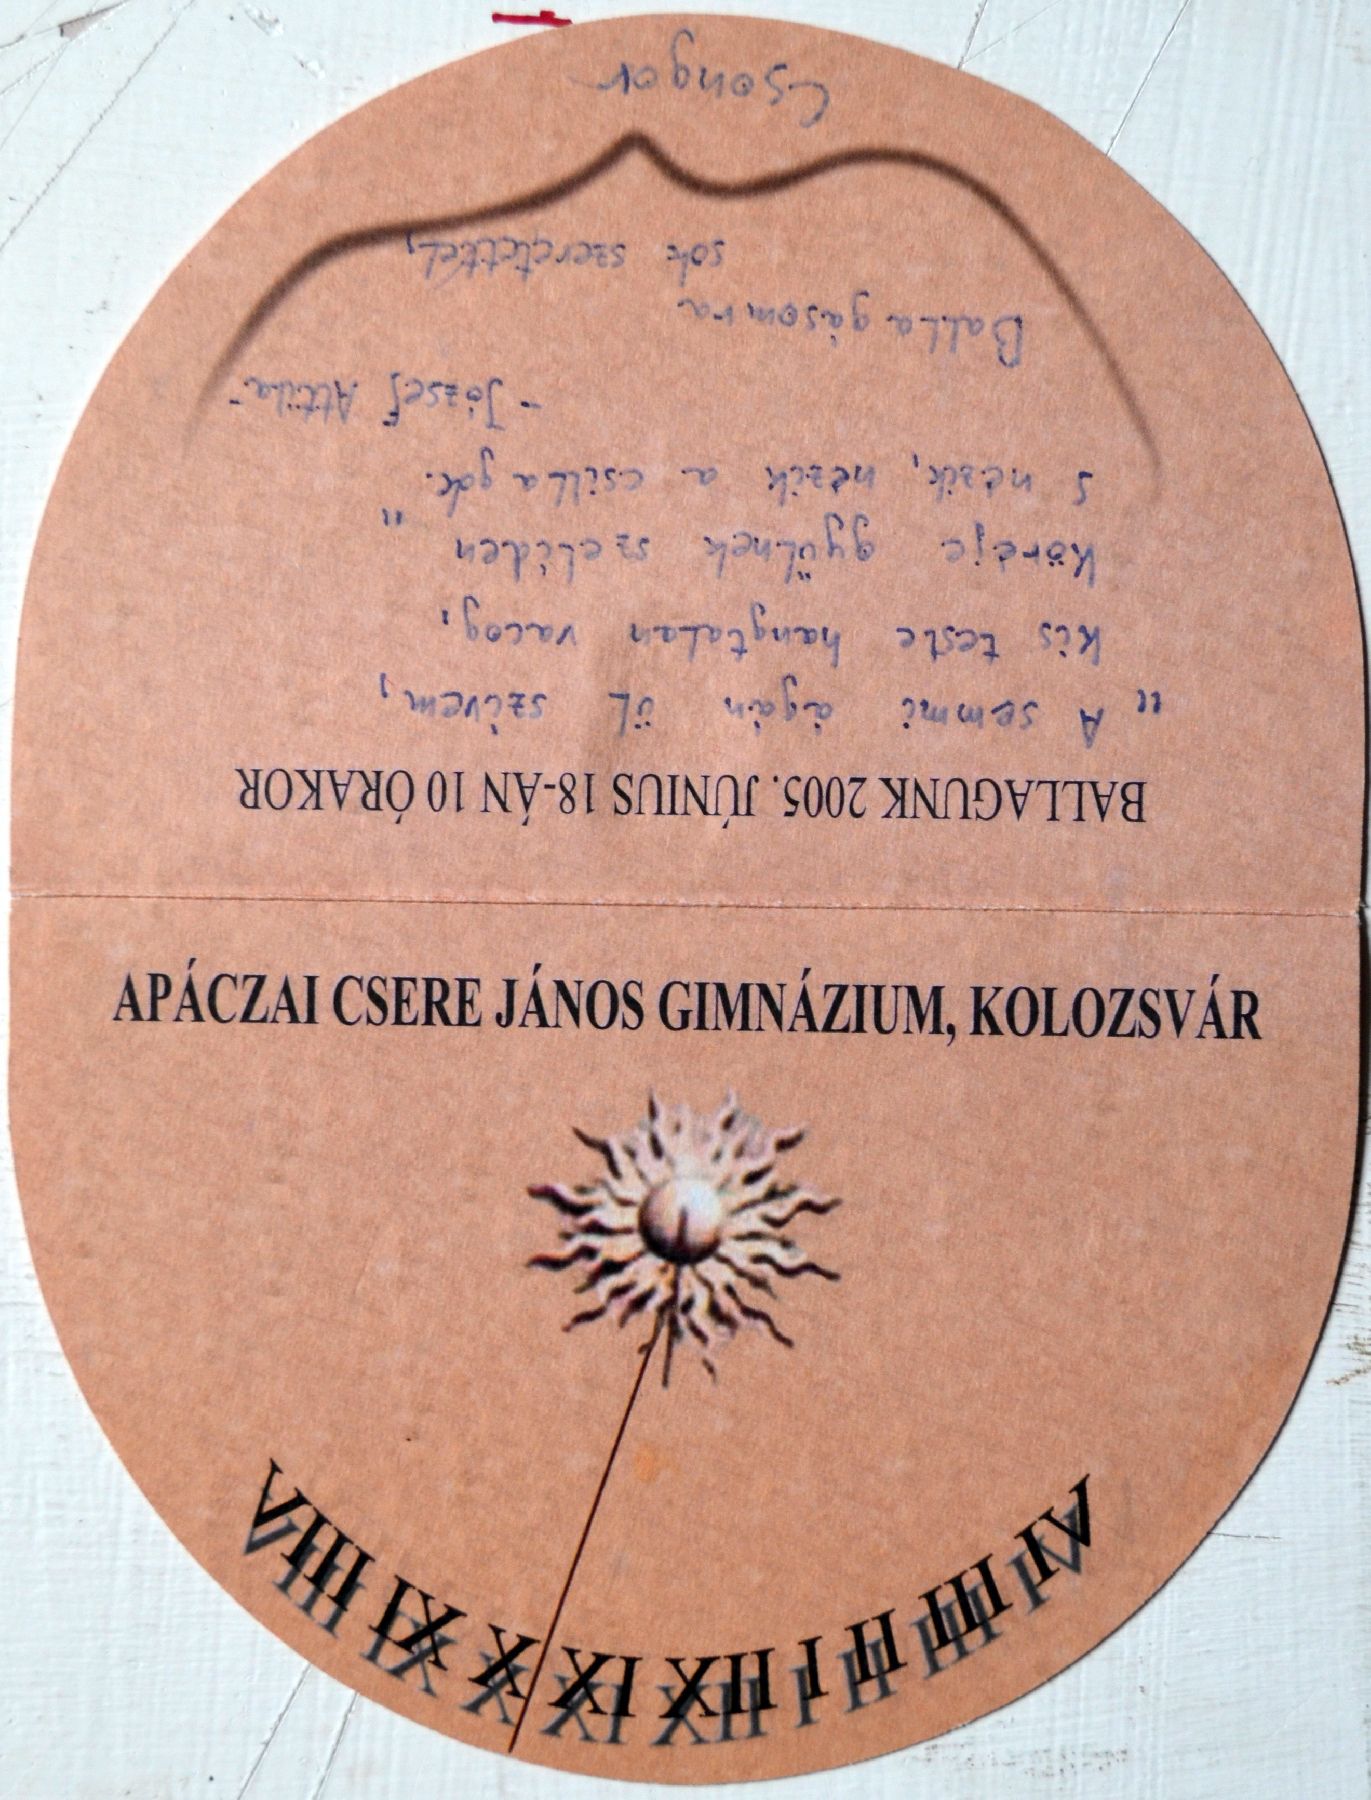 APÁCZAI CSERE JÁNOS GIMNÁZIUM, KOLOZSVÁR
VIII IX X XI XII I II III IV
BALLAGUNK 2005. JÚNIUS 18-ÁN 10 ÓRAKOR
"A semmi ágán ül szívem,
Kis teste hangtalan vacog,
Köréje gyűlnek szelíden
S nézik, nézik a csillagok."
- József Attila -
Ballagásomra
sok szeretettel,
Csongor